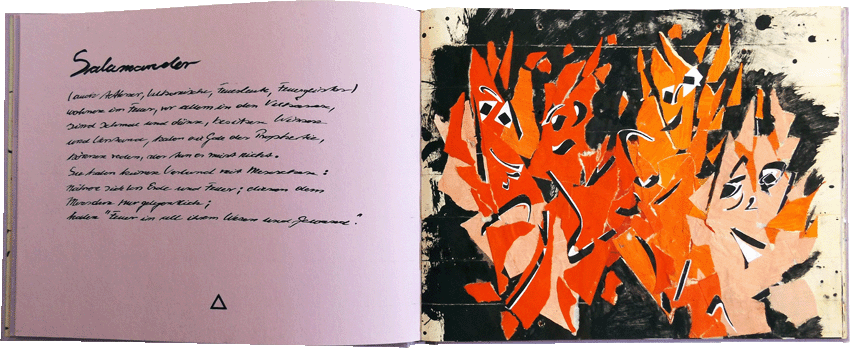 Salamander
(auch Aethner, Vulkanische, Feuerleute, Feuergeister)
wohnen im Feuer, vor allem in den Vulkanen,
sind schmal und dürr, besitzen Wissen
und Verstand, haben die Gabe der Prophetie,
können reden, tun es meist nicht.
Sie haben keinen Verbund mit Menschen:
sich von Erde und Feuer; dienen dem
Menschen nur gelegentlich;
haben "Feuer in all ihrem Wesen und Gewand".